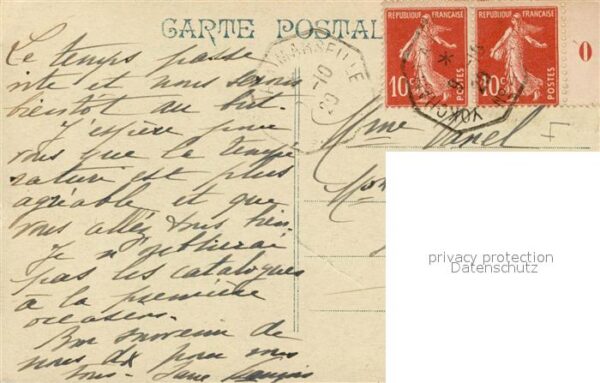 CARTE POSTALE
Le temps passe
vite et nous serons
bientôt au but.
J'espère pour
vous que la tempé
rature est plus
agréable et que
vous allez tous bien.
Je n'oublierai
pas les catalogues
à la première
occasion.
Bon souvenir de
nous dx pour vous
tous - 
RÉPUBLIQUE FRANÇAISE
10c POSTES
RÉPUBLIQUE FRANÇAISE
10c POSTES
0
MARSEILLE
10
20
YOKOHA
Mme Vanel
F
privacy protection
Datenschutz